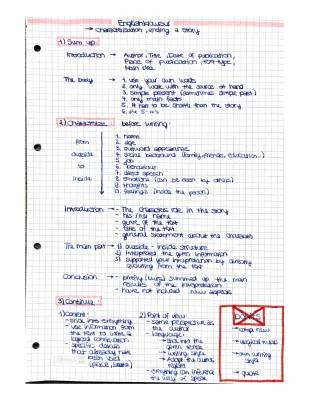 Englishklausur
→ characterization, ending a story
1) Sum up
Introduction → Author, Title, Date of publication,
Place of publication, text-type,
Main idea
The body → 1. use your own words
2. only work with the source at hand
3. simple present (sometimes simple past)
4. only main facts
5. It has to be shorter than the story
2) Characterize: before writing:
1. name
from 2. age
3. outward appearance
outside 4. social background (family, friends, education...)
5. job
to 6. behaviour
7. direct speech
inside 8. emotions (can be seen by others)
9. thoughts
10. feelings (inside the person)
Introduction → - The characters role in the story
- his / her name
- genre of the text
- title of the text
- general statement about the character
The main part → 1) outside - inside structure
2) Interpreted the given information
3) supported your interpretation by directly
quoting from the text
Conclusion → - briefly summed up the main
results of the interpretation
- have not included new aspects
3) Continue:
1) content: 2) Point of view:
- same perspective as
- use information from the author
the text to write a - language:
logical continuation
specific details
that already have - writing style
been used - Adapt the
(place,
- everything can influence
the way of speak